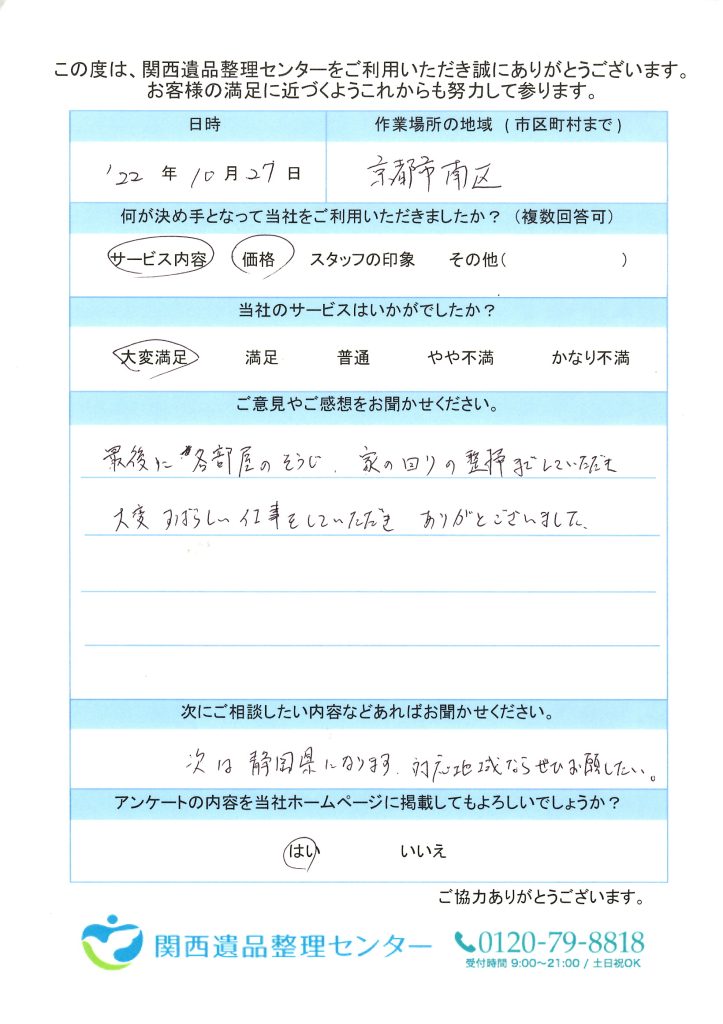 この度は、関西遺品整理センターをご利用いただき誠にありがとうございます。
お客様の満足に近づくようこれからも努力して参ります。
日時 作業場所の地域 (市区町村まで)
'22 年 10 月 27 日 京都市南区
何が決め手となって当社をご利用いただきましたか？（複数回答可）
サービス内容 価格 スタッフの印象 その他( )
当社のサービスはいかがでしたか？
大変満足 満足 普通 やや不満 かなり不満
ご意見やご感想をお聞かせください。
最後に 各部屋のそうじ、家の回りの整掃までしていただき
大変 すばらしい仕事をしていただき ありがとございました、
次にご相談したい内容などあればお聞かせください。
次は 静岡県になります、対応地域ならぜひお願したい。
アンケートの内容を当社ホームページに掲載してもよろしいでしょうか？
はい いいえ
ご協力ありがとうございます。
関西遺品整理センター 0120-79-8818
受付時間 9:00～21:00 / 土日祝OK